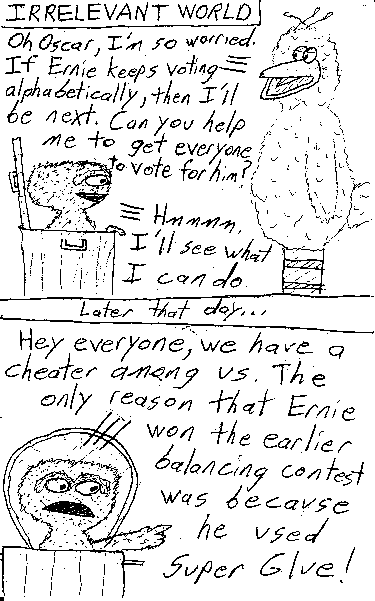 IRRELEVANT WORLD
Oh Oscar, I'm so worried.
If Ernie keeps voting
alphabetically, then I'll
be next. Can you help
me to get everyone
to vote for him?
Hmmmm,
I'll see what
I can do.
Later that day...
Hey everyone, we have a
cheater among us. The
only reason that Ernie
won the earlier
balancing contest
was because
he used
Super Glue!